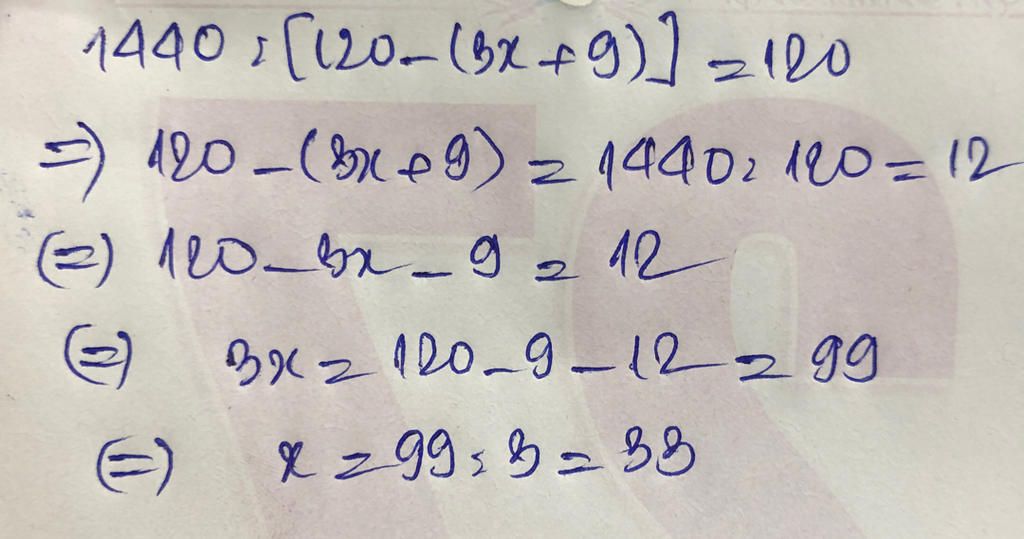 1440 : [120 - (3x + 9)] = 120
=> 120 - (3x + 9) = 1440 : 120 = 12
(=) 120 - 3x - 9 = 12
(=) 3x = 120 - 9 - 12 = 99
(=) x = 99 : 3 = 33